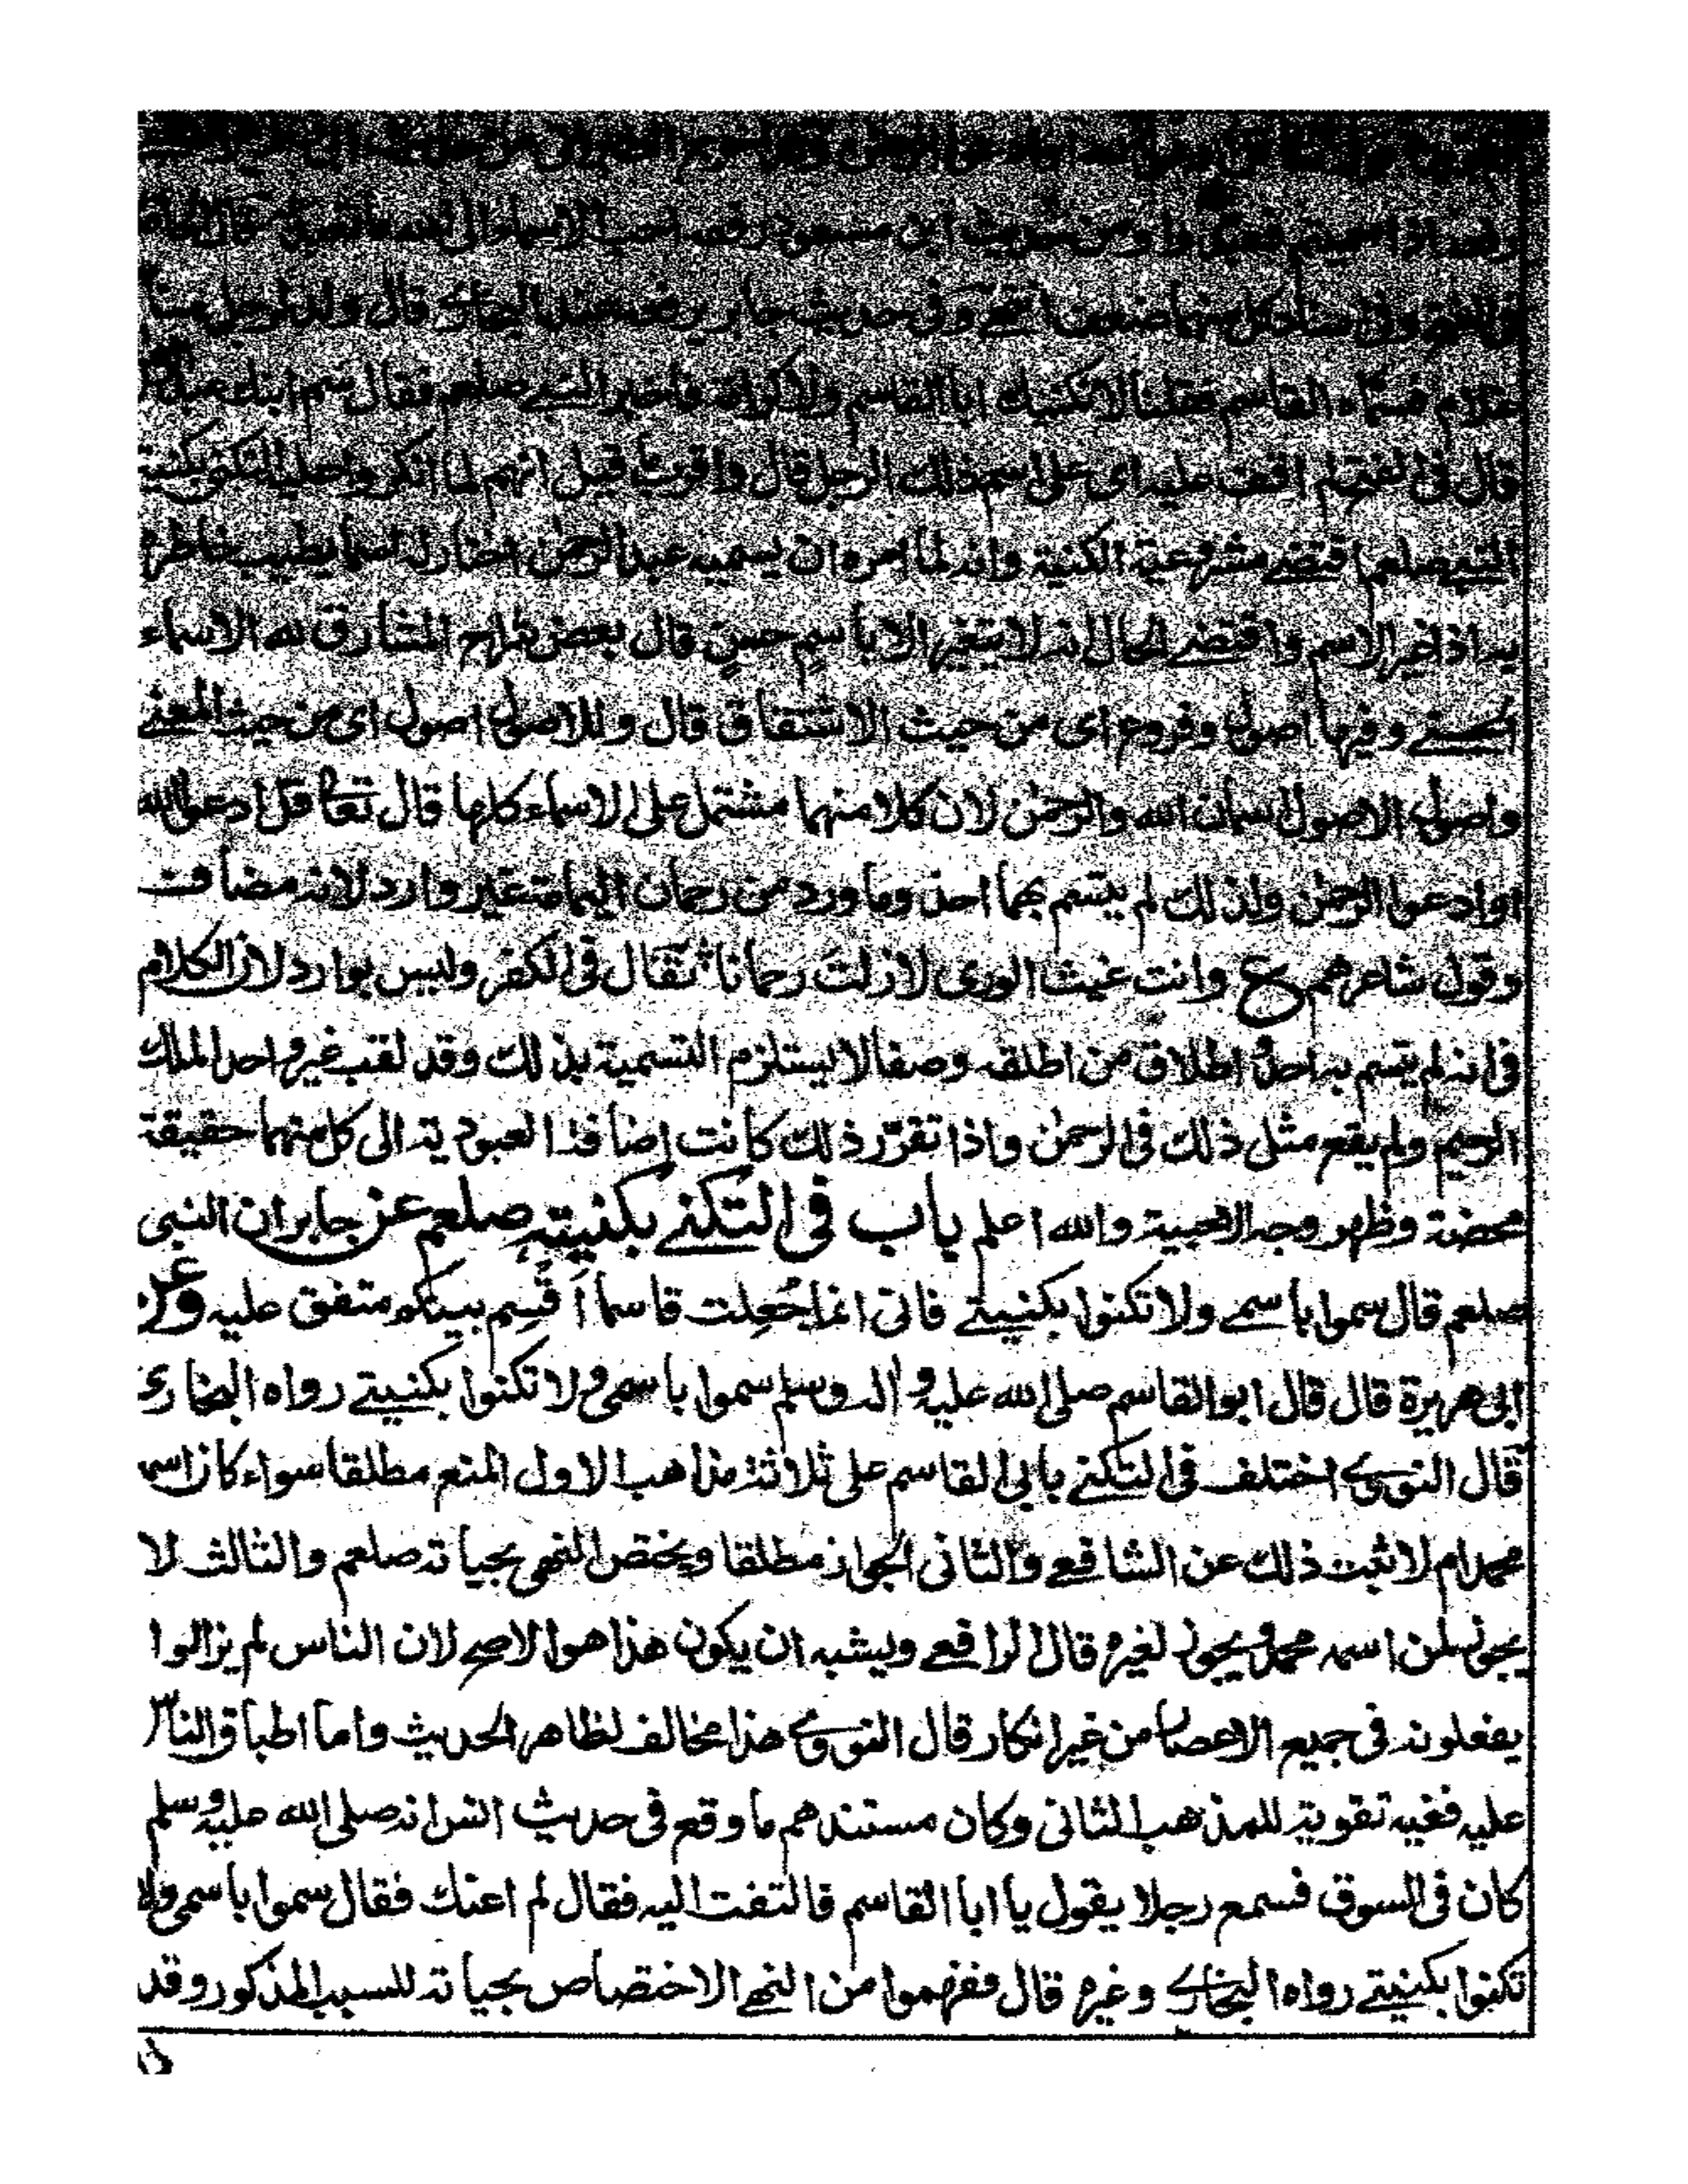 رفعه اذا سميتم فعبدوا ومن حديث ابن مسعود رفعه احب الاسماء الى الله ما تعبد به قال الحافظ
فى الفتح وفى اسناد كل منهما ضعف انتهى وفى حديث جابر رضه عند البخارى قال ولد لرجل منا
غلام فسماه القاسم فقلنا لا نكنيك ابا القاسم ولا كرامة فاخبر النبى صلعم فقال سم ابنك عبد
قال فى الفتح لم اقف عليه اى على اسم ذلك الرجل قال واقرب ما قيل انهم لما انكروا عليه التكنى بكنية
النبى صلعم اقتضى مشروعية الكنية وانه لما امره ان يسميه عبد الرحمن اختار له اسما يطيب خاطره
به اذ غير الاسم واقتضى الحال انه لا يتغير الا باسم حسن قال بعض شراح المشارق لله الاسماء
الحسنى وفيها اصول وفروع اى من حيث الاشتقاق قال وللاصول اصول اى من حيث المعنى
واصول الاصول اسمان الله والرحمن لان كلا منهما مشتمل على الاسماء كلها قال تعالى قل ادعوا الله
او ادعوا الرحمن ولذلك لم يتسم بهما احد وما ورد من رحمان اليمامة غير وارد لانه مضاف
وقول شاعرهم ع وانت غيث الورى لا زلت رحمانا تقال فى الكفر وليس بوارد لان الكلام
فى انه لم يتسم به احد اطلاق من اطلقه وصفا لا يستلزم التسمية بذلك وقد لقب غير واحد الملك
الرحيم ولم يقع مثل ذلك فى الرحمن واذا تقرر ذلك كانت اضافة العبودية الى كل منهما حقيقة
محضة وظهر وجه الاحبية والله اعلم باب فى التكنى بكنيته صلعم عن جابر ان النبى
صلعم قال سموا باسمى ولا تكنوا بكنيتى فانى انما جعلت قاسما اقسم بينكم متفق عليه وعن
ابى هريرة قال قال ابو القاسم صلى الله عليه واله وسلم سموا باسمى ولا تكنوا بكنيتى رواه البخارى
قال النووى اختلف فى التكنى بابى القاسم على ثلاثة مذاهب الاول المنع مطلقا سواء كان اسمه
محمدا ام لا ثبت ذلك عن الشافعى والثانى الجواز مطلقا ويختص النهى بحياته صلعم والثالث لا
يجوز لمن اسمه محمد ويجوز لغيره قال الرافعى ويشبه ان يكون هذا هو الاصح لان الناس لم يزالوا
يفعلونه فى جميع الاعصار من غير انكار قال النووى هذا مخالف لظاهر الحديث واما اطباق الناس
عليه ففيه تقوية للمذهب الثانى وكان مستندهم ما وقع فى حديث انس انه صلى الله عليه وسلم
كان فى السوق فسمع رجلا يقول يا ابا القاسم فالتفت اليه فقال لم اعنك فقال سموا باسمى ولا
تكنوا بكنيتى رواه البخارى وغيره قال ففهموا من النهى الاختصاص بحياته للسبب المذكور وقد